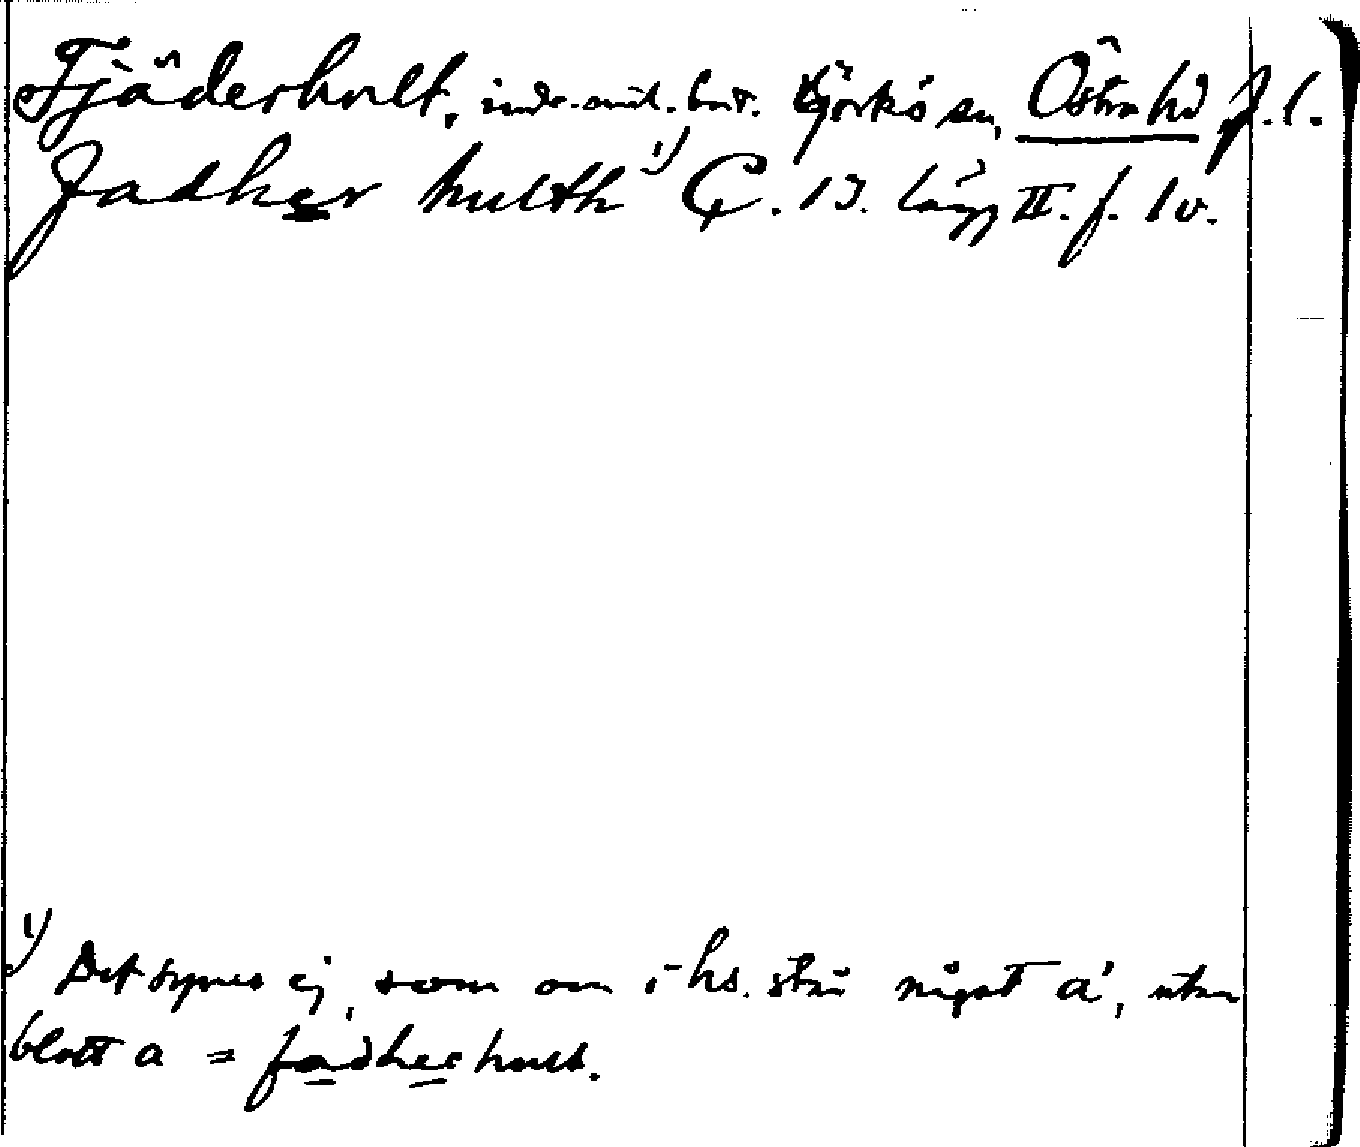 Fjäderhult, inde. mil. bost. Björkö sn, Östra hd J.l.
fadher hulth ¹) C. 13. lägg II. f. 1 v.
¹) Det synes ej, som om i hs. står något á, utan
blott a = fadherhult.